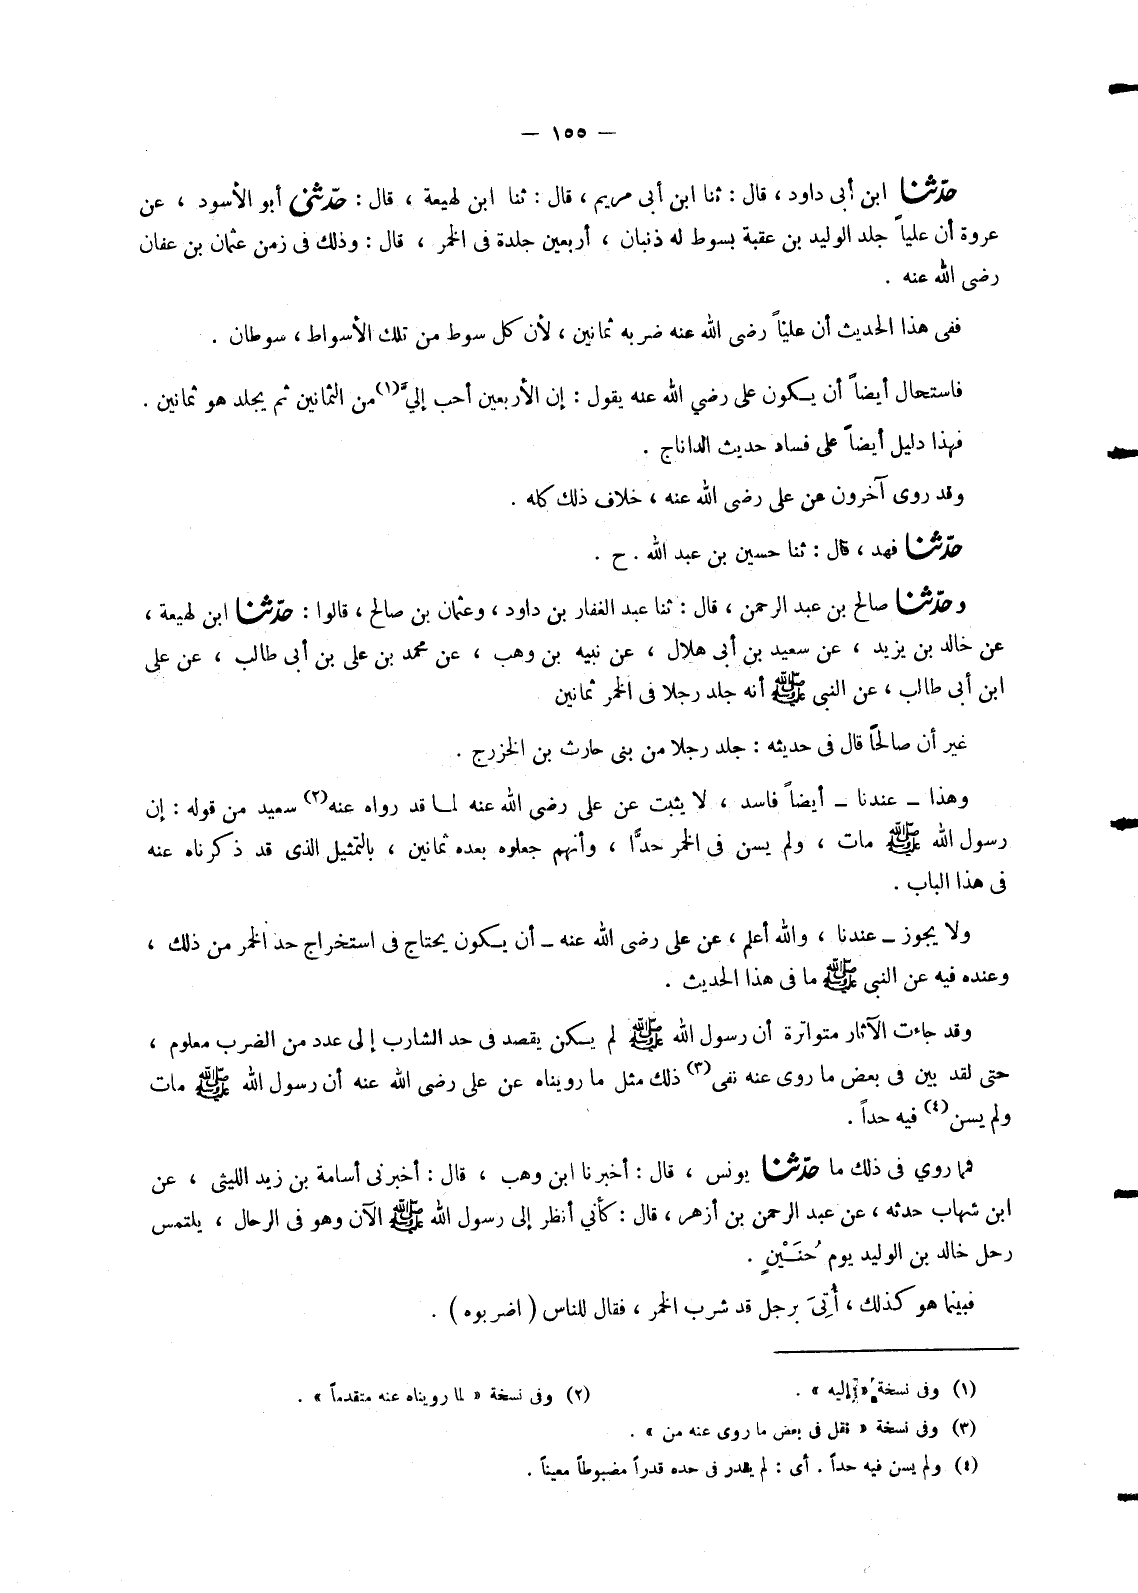 — ١٥٥ —
حدّثنا ابن أبى داود ، قال : ثنا ابن أبى مريم ، قال : ثنا ابن لهيعة ، قال : حدّثنى أبو الأسود ، عن
عروة أن علياً جلد الوليد بن عقبة بسوط له ذنبان ، أربعين جلدة فى الخمر ، قال : وذلك فى زمن عثمان بن عفان
رضى الله عنه .
ففى هذا الحديث أن علياً رضى الله عنه ضربه ثمانين ، لأن كل سوط من تلك الأسواط ، سوطان .
فاستحال أيضاً أن يكون على رضي الله عنه يقول : إن الأربعين أحب إليَّ(١) من الثمانين ثم يجلد هو ثمانين .
فهذا دليل أيضاً على فساد حديث الداناج .
وقد روى آخرون عن على رضى الله عنه ، خلاف ذلك كله .
حدّثنا فهد ، قال : ثنا حسين بن عبد الله . ح .
وحدّثنا صالح بن عبد الرحمن ، قال : ثنا عبد الغفار بن داود ، وعثمان بن صالح ، قالوا : حدّثنا ابن لهيعة ،
عن خالد بن يزيد ، عن سعيد بن أبى هلال ، عن نبيه بن وهب ، عن محمد بن على بن أبى طالب ، عن على
ابن أبى طالب ، عن النبى ﷺ أنه جلد رجلا فى الخمر ثمانين
غير أن صالحاً قال فى حديثه : جلد رجلا من بنى حارث بن الخزرج .
وهذا – عندنا – أيضاً فاسد ، لا يثبت عن على رضي الله عنه لما قد رواه عنه(٢) سعيد من قوله : إن
رسول الله ﷺ مات ، ولم يسن فى الخمر حدًّا ، وأنهم جعلوه بعده ثمانين ، بالتمثيل الذى قد ذكرناه عنه
فى هذا الباب .
ولا يجوز – عندنا ، والله أعلم ، عن على رضى الله عنه – أن يكون يحتاج فى استخراج حد الخمر من ذلك ،
وعنده فيه عن النبى ﷺ ما فى هذا الحديث .
وقد جاءت الآثار متواترة أن رسول الله ﷺ لم يكن يقصد فى حد الشارب إلى عدد من الضرب معلوم ،
حتى لقد بين فى بعض ما روى عنه نفى(٣) ذلك مثل ما رويناه عن على رضى الله عنه أن رسول الله ﷺ مات
ولم يسن(٤) فيه حداً .
فما روي فى ذلك ما حدّثنا يونس ، قال : أخبرنا ابن وهب ، قال : أخبرنى أسامة بن زيد الليثى ، عن
ابن شهاب حدثه ، عن عبد الرحمن بن أزهر ، قال : كأني أنظر إلى رسول الله ﷺ الآن وهو فى الرحال ، يلتمس
رحل خالد بن الوليد يوم حُنَيْنٍ .
فبينما هو كذلك ، أُتِىَ برجل قد شرب الخمر ، فقال للناس ( اضربوه ) .
(١) وفى نسخة « إليه » . (٢) وفى نسخة « لما رويناه عنه متقدماً » .
(٣) وفى نسخة « نقل فى بعض ما روى عنه من » .
(٤) ولم يسن فيه حداً . أى : لم يقدر فى حده قدراً مضبوطاً معيناً .